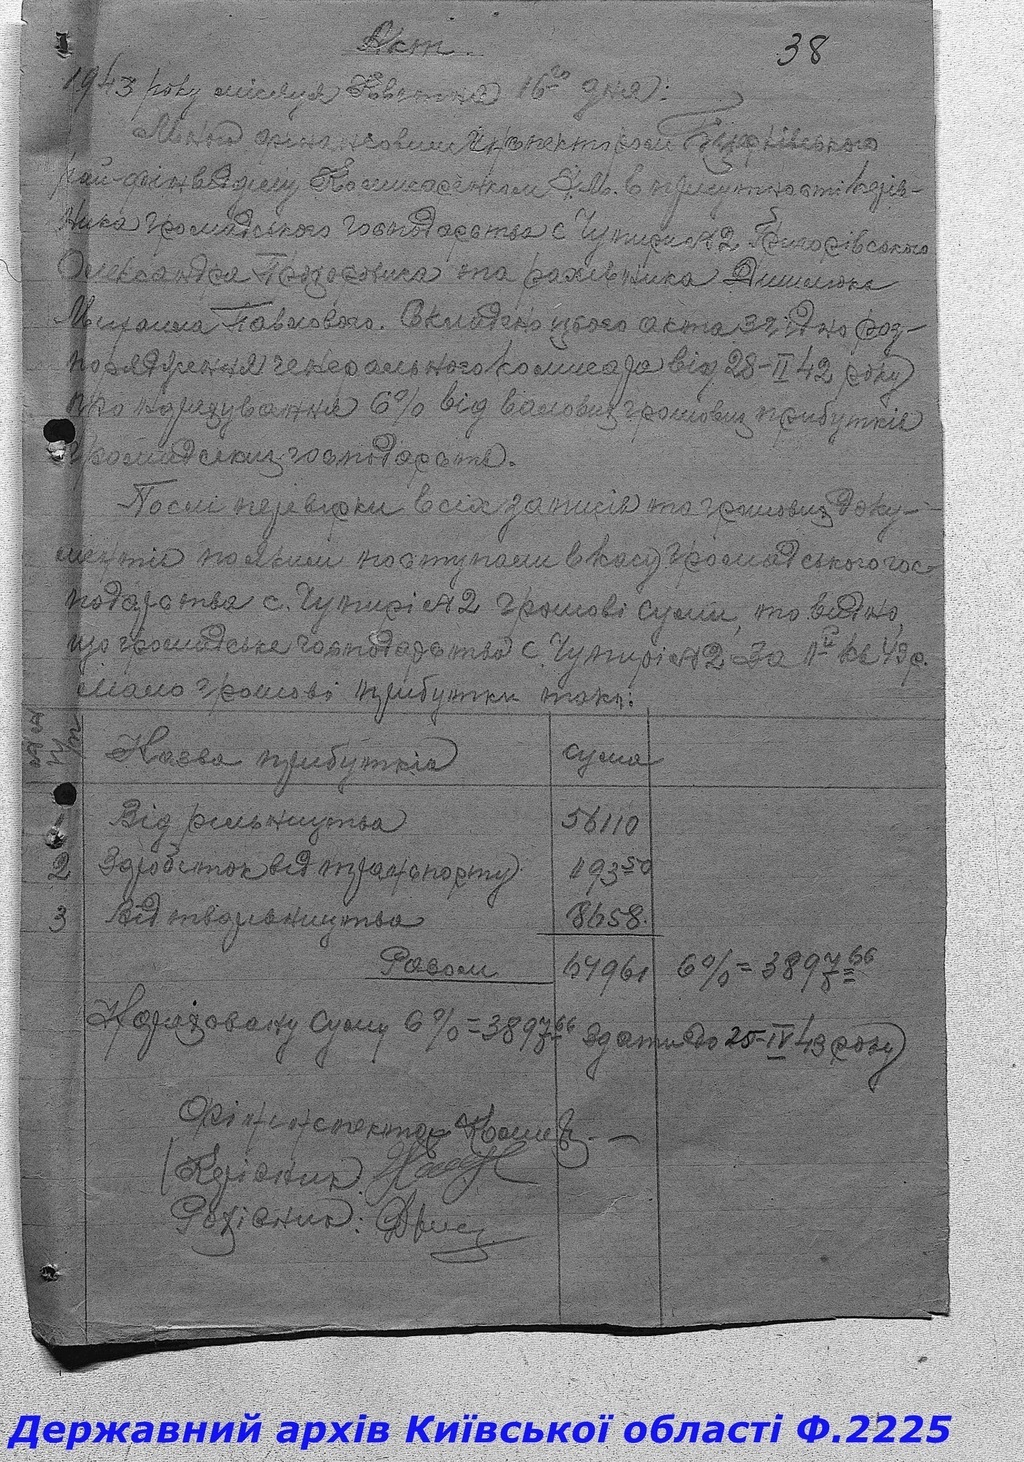 Акт.
38
1943 року місяця 16го дня:
Мною фінансовим інспектором
рай-фінвідділу в присутності керів-
ника громадського господарства с. Чупирі №2 Григорівського
Олександра та рахівника
Михаила Павлового. Складено цього акта згідно роз-
порядження генерального комисара від 28-II 42 року
про нарахування 6% від валових грошових прибутків
громадських господарств.
Послі перевірки всіх записів та грошових доку-
ментів по яким поступали в касу громадського гос-
подарства с. Чупирі №2 грошові суми, то видно,
що громадське господарство с. Чупирі №2 за кв 43 р.
мало грошові прибутки такі:
№№ п/п
Назва прибутків
сума
1 Від рільництва 56110
2 Заробіток від транспорту 193 50
3 Від тваринництва 8658.
Разом 64961 6% = 3897 66
Нараховану суму 6% = 3897 66 здати до 25-IV 43 року
Фінінспектор
Керівник
Рахівник:
Державний архів Київської області Ф.2225